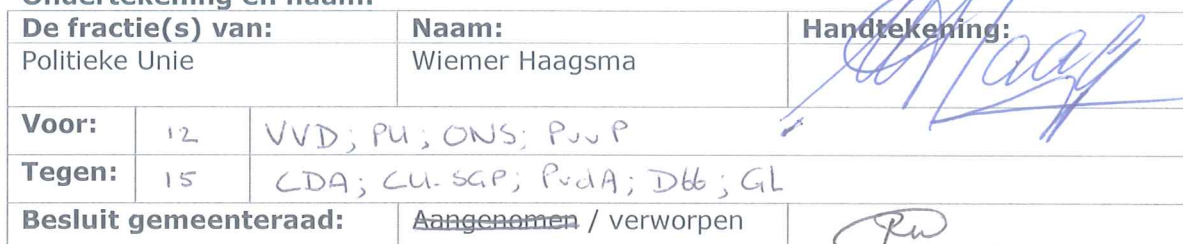 Ondertekening en naam:
De fractie(s) van: Naam: Handtekening:
Politieke Unie Wiemer Haagsma
Voor: 12 VVD; PU; ONS; PvvP
Tegen: 15 CDA; CU-SGP; PvdA; D66; GL
Besluit gemeenteraad: Aangenomen / verworpen